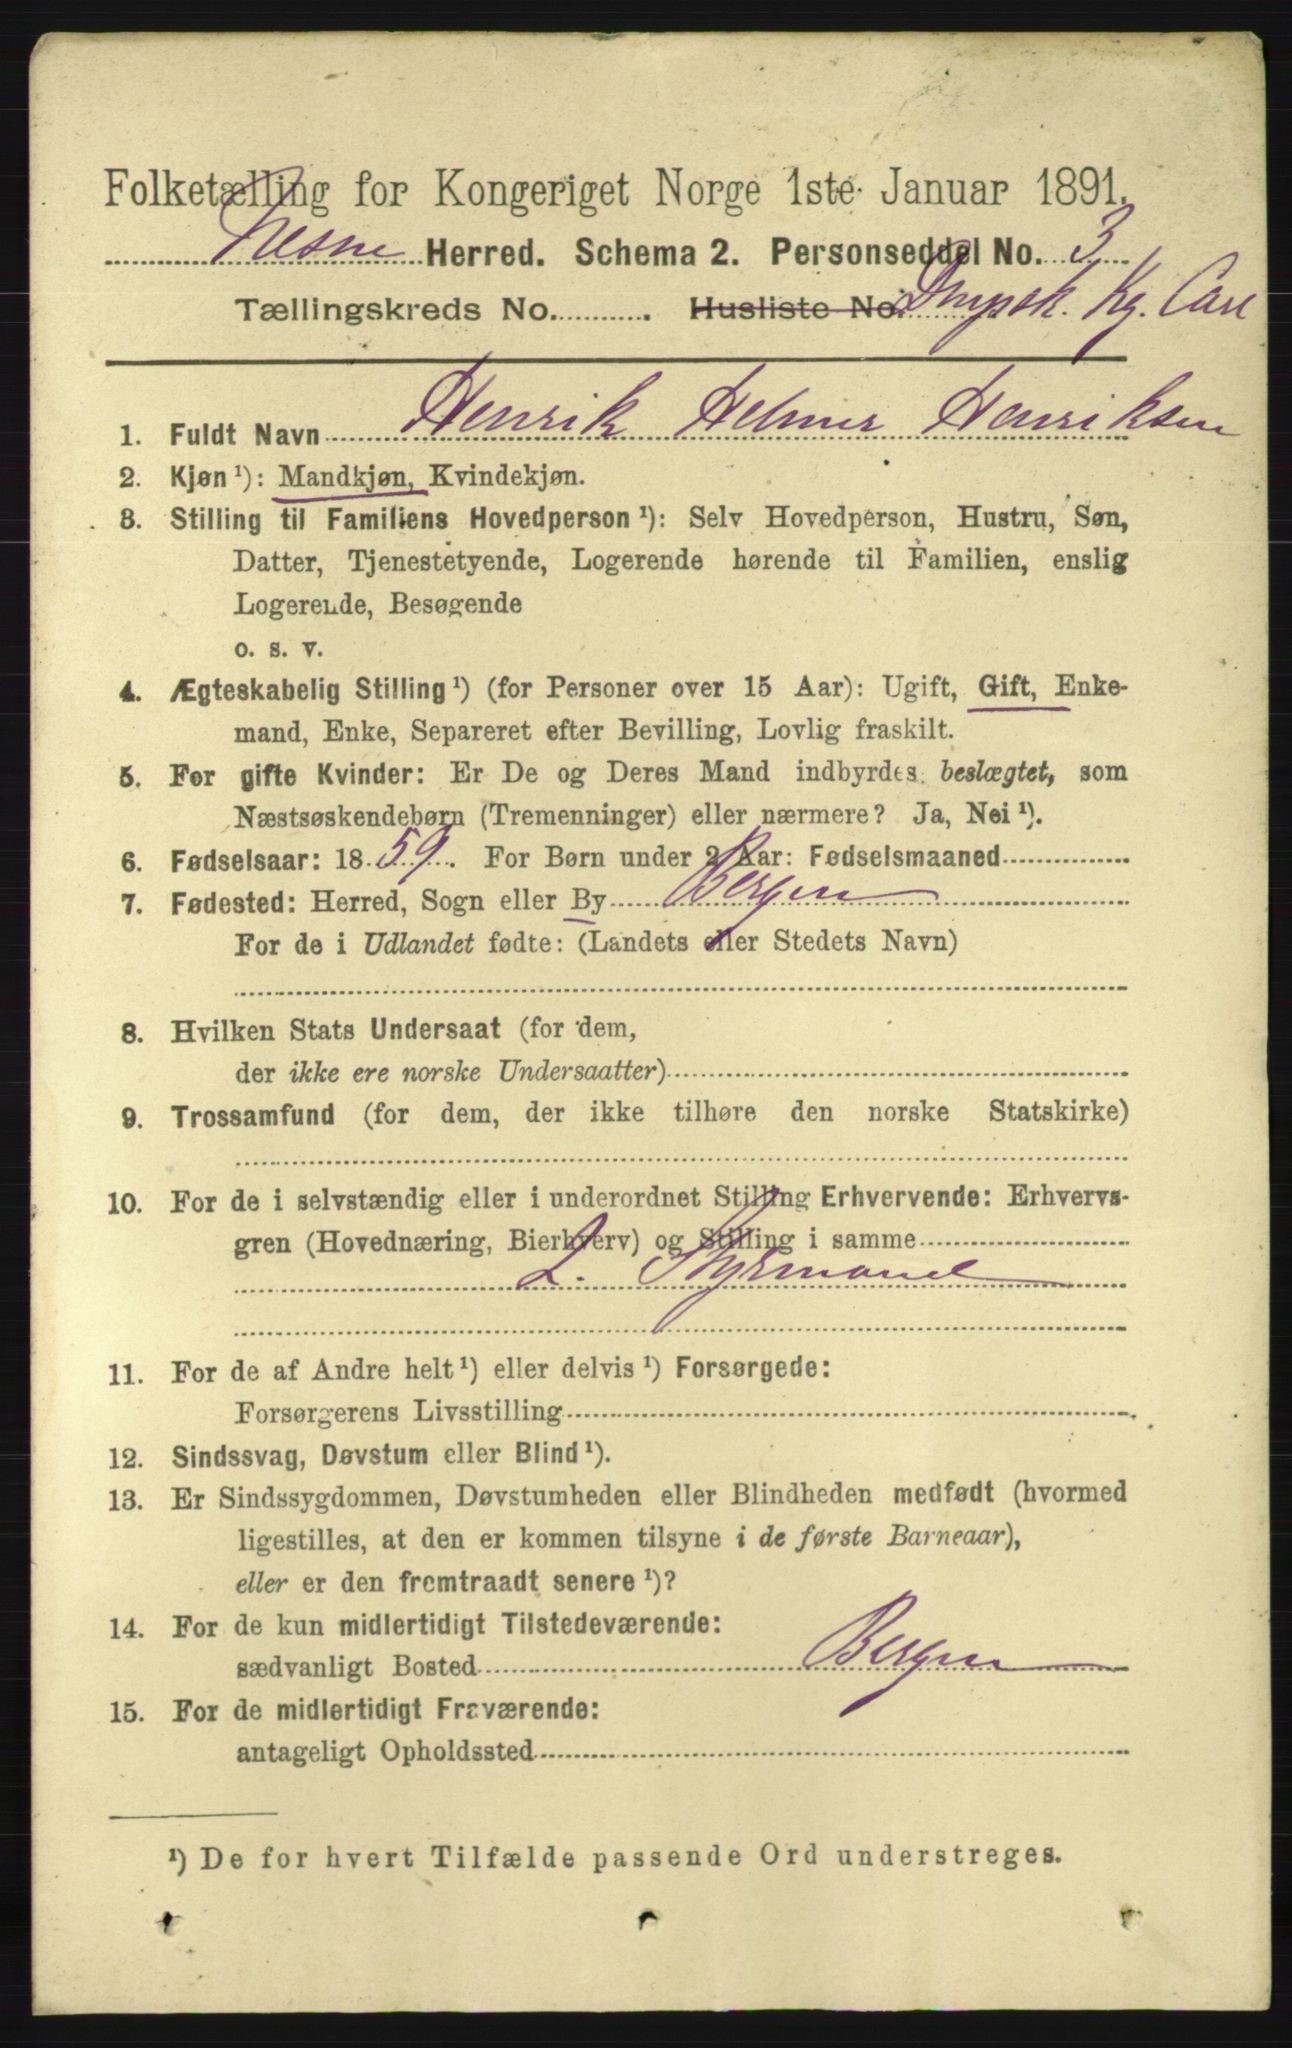 Folketælling for Kongeriget Norge 1ste Januar 1891.
Nesne Herred. Schema 2. Personseddel No. 3
Tællingskreds No. . Husliste No. Dmpsk. Kg. Carl
1. Fuldt Navn Henrik Helmer Henriksen
2. Kjøn¹): Mandkjøn, Kvindekjøn.
3. Stilling til Familiens Hovedperson¹): Selv Hovedperson, Hustru, Søn,
Datter, Tjenestetyende, Logerende hørende til Familien, enslig
Logerende, Besøgende
o. s. v.
4. Ægteskabelig Stilling¹) (for Personer over 15 Aar): Ugift, Gift, Enke-
mand, Enke, Separeret efter Bevilling, Lovlig fraskilt.
5. For gifte Kvinder: Er De og Deres Mand indbyrdes beslægtet, som
Næstsøskendebørn (Tremenninger) eller nærmere? Ja, Nei¹).
6. Fødselsaar: 1859. For Børn under 2 Aar: Fødselsmaaned
7. Fødested: Herred, Sogn eller By Bergen
For de i Udlandet fødte: (Landets eller Stedets Navn)
8. Hvilken Stats Undersaat (for dem,
der ikke ere norske Undersaatter)
9. Trossamfund (for dem, der ikke tilhøre den norske Statskirke)
10. For de i selvstændig eller i underordnet Stilling Erhvervende: Erhvervs-
gren (Hovednæring, Bierhverv) og Stilling i samme
2. Styrmand
11. For de af Andre helt¹) eller delvis¹) Forsørgede:
Forsørgerens Livsstilling
12. Sindssvag, Døvstum eller Blind¹).
13. Er Sindssygdommen, Døvstumheden eller Blindheden medfødt (hvormed
ligestilles, at den er kommen tilsyne i de første Barneaar),
eller er den fremtraadt senere¹)?
14. For de kun midlertidigt Tilstedeværende:
sædvanligt Bosted Bergen
15. For de midlertidigt Fraværende:
antageligt Opholdssted
¹) De for hvert Tilfælde passende Ord understreges.